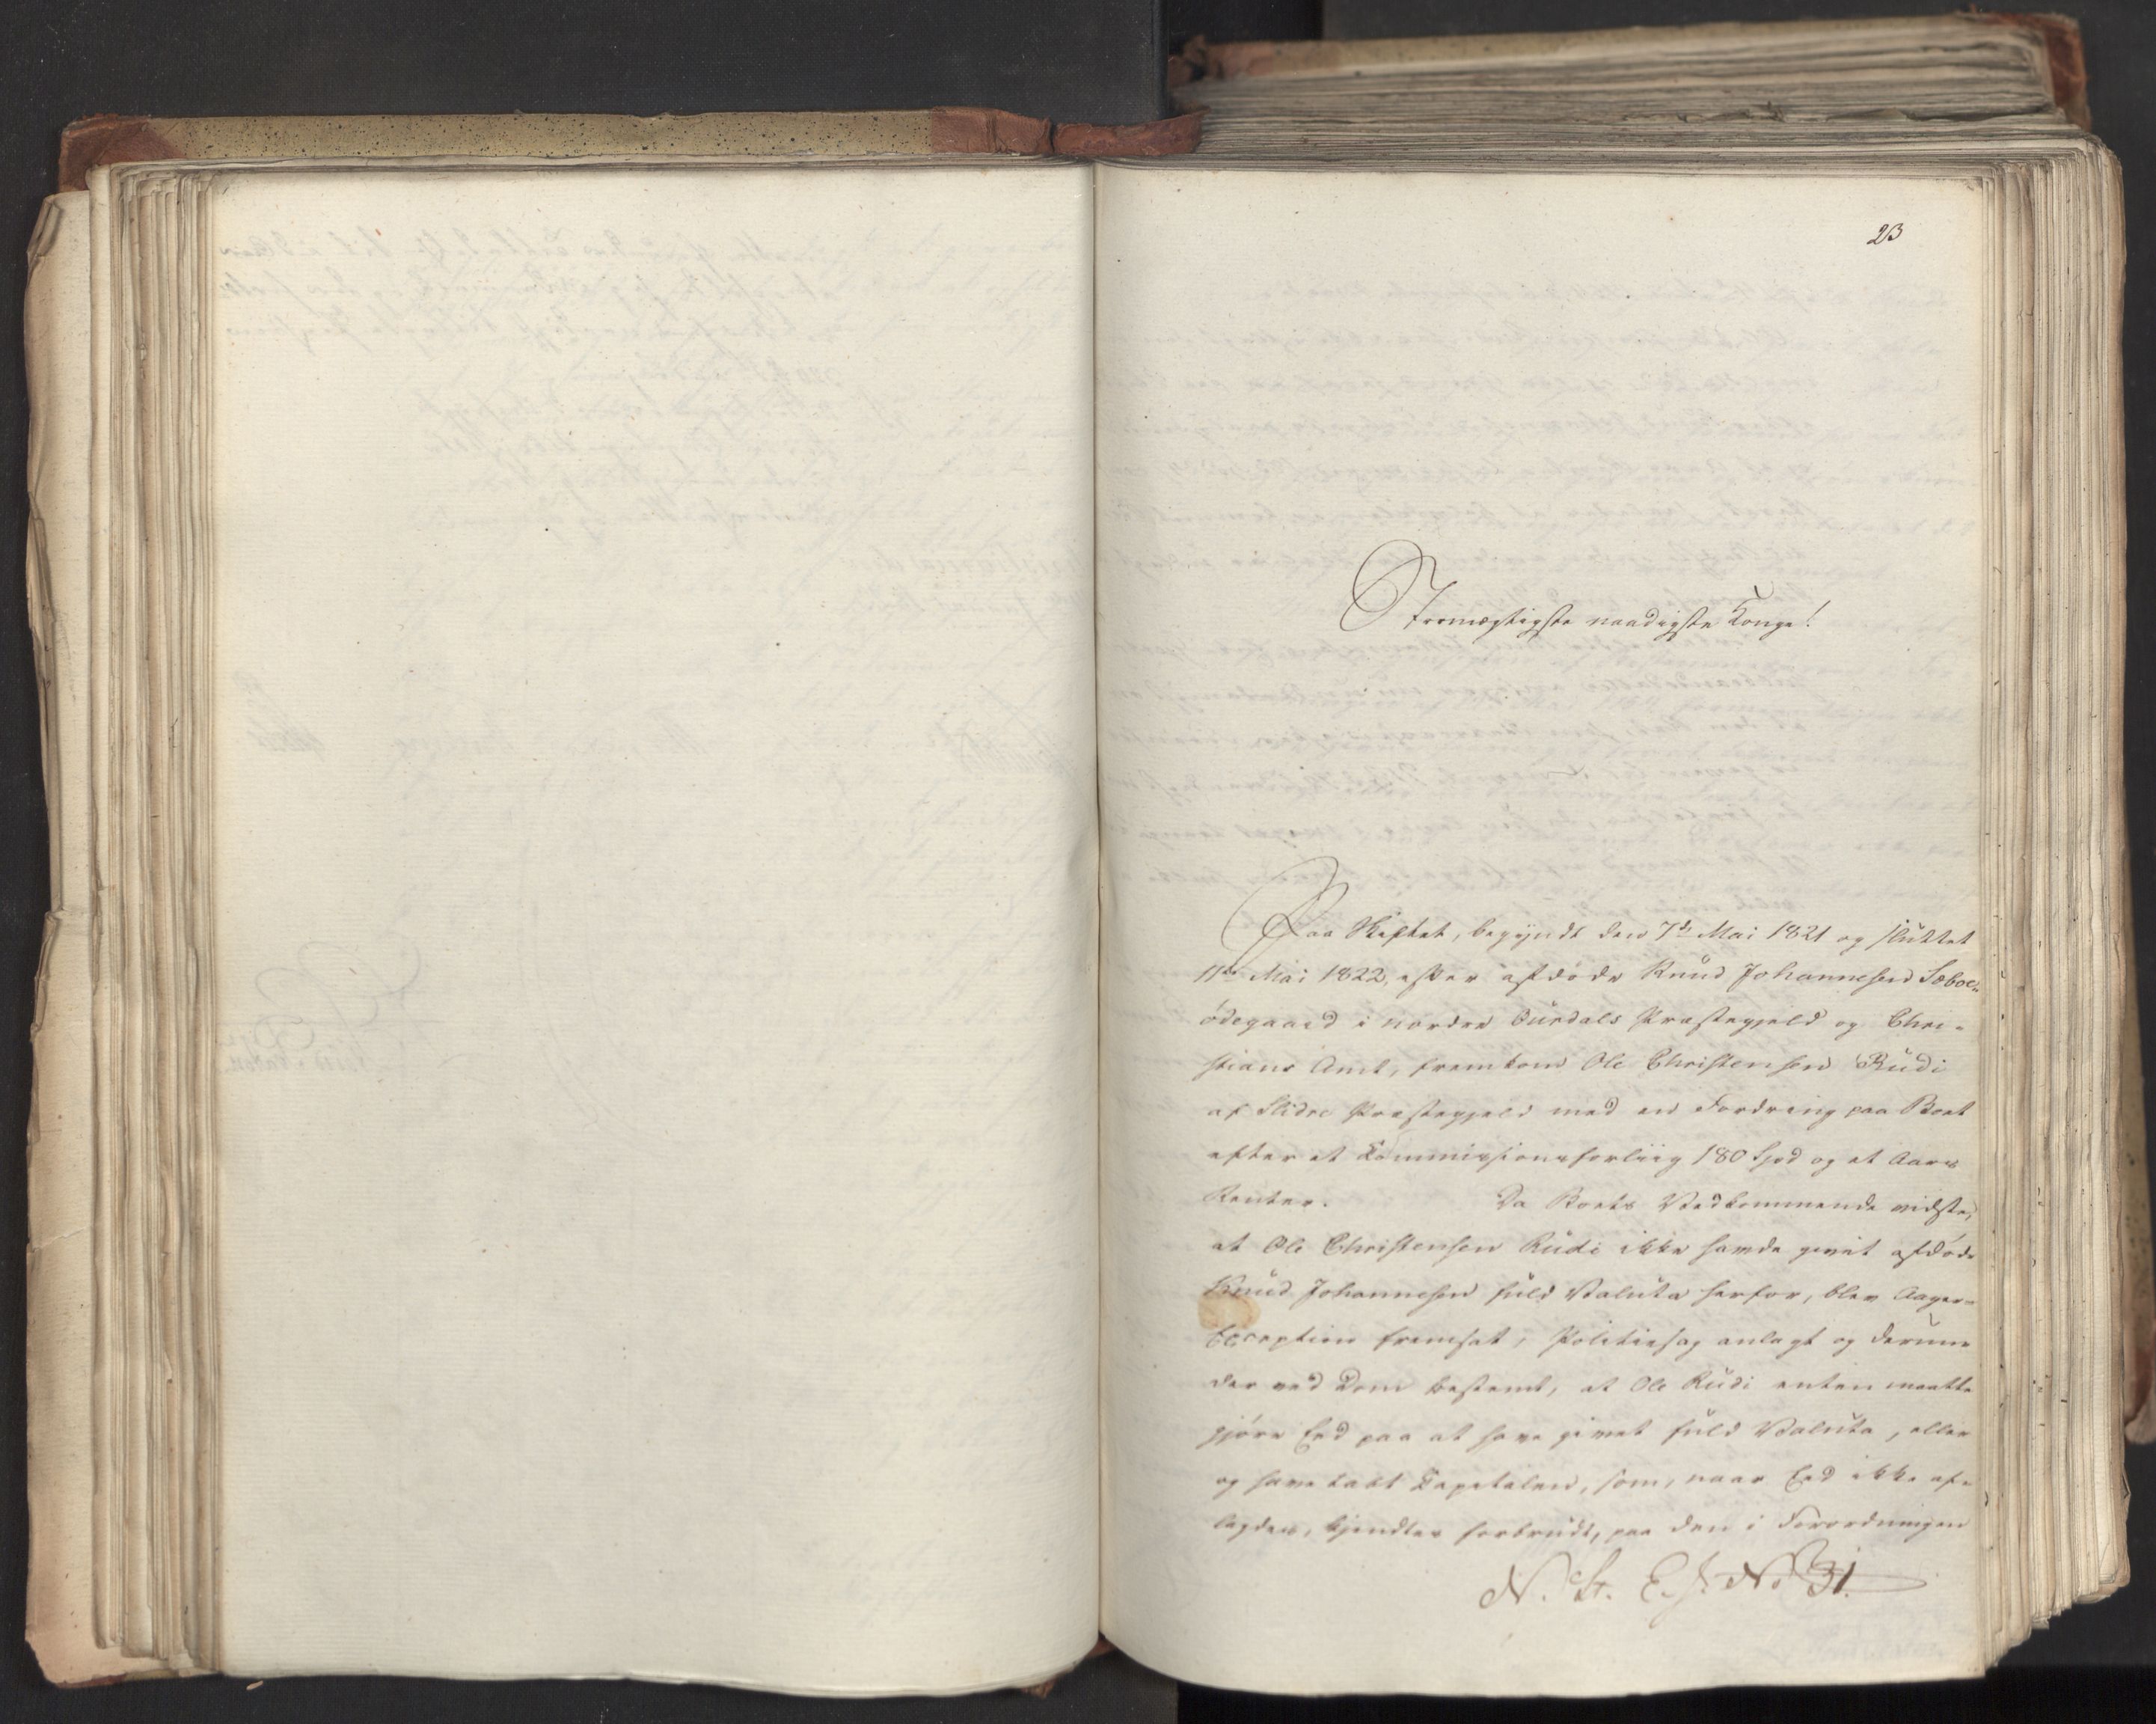 23
Stormægtigste naadigste Konge!
Paa Skiftet, begyndt den 7de Mai 1821 og sluttet
11te Mai 1822, efter afdøde Knud Johannesen Sæboe-
ødegaard i nordre Ourdals Præstegjeld og Chri-
stians Amt, fremkom Ole Christensen Rudi
af Slidre Præstegjeld med en Fordring paa Boet
efter et Commissionsforliig 180 Spd og et Aars
Renter. Da Boets Vedkommende vidste,
at Ole Christensen Rudi ikke havde givet afdøde
Knud Johannesen fuld Valuta herfor, blev Aager-
Exception fremsat, Politiesag anlagt og derun-
der ved Dom bestemt, at Ole Rudi enten maatte
gjøre Eed paa at have givet fuld Valuta, eller
og have tabt Capitalen, som, naar Eed ikke af-
lagdes, kjendtes forbrudt, paa den i Forordningen
N. St. E. J. No 31.